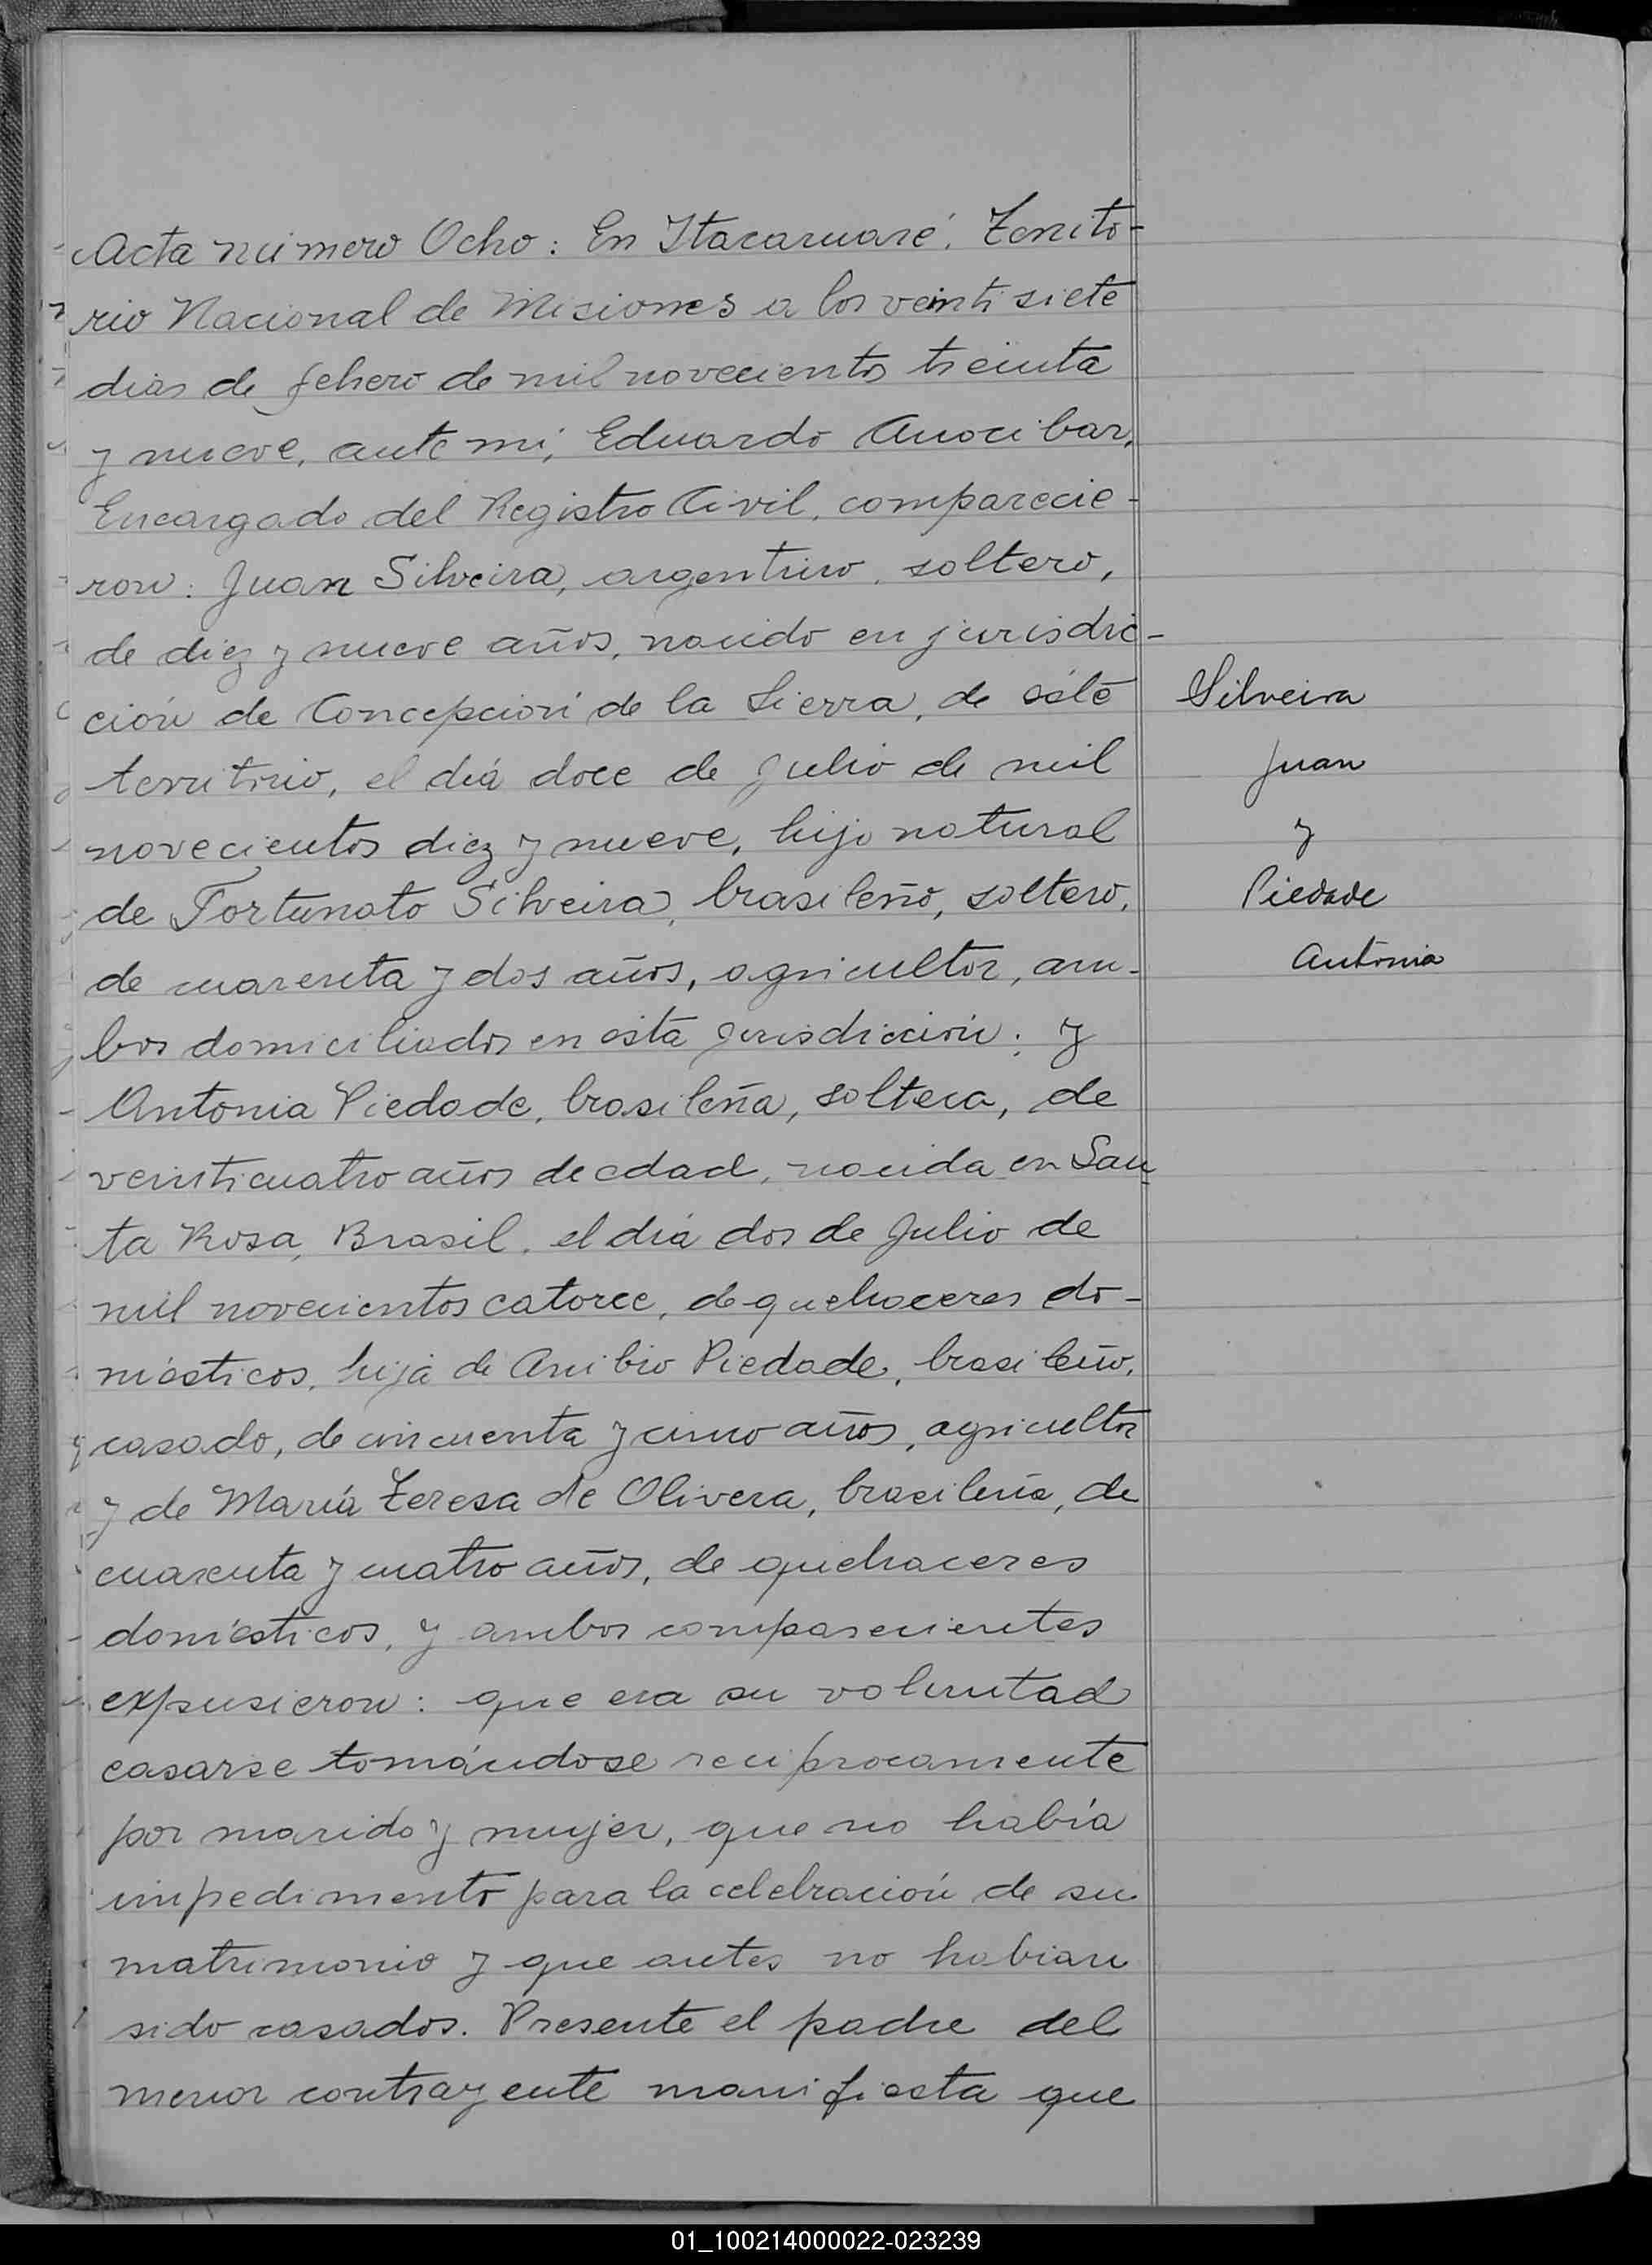 Acta número Ocho: En Itacaruaré, Territo-
rio Nacional de Misiones a los veinti siete
dias de febrero de mil novecientos treinta
y nueve, ante mi, Eduardo Anocibar,
Encargado del Registro Civil, comparecie-
ron: Juan Silveira, argentino, soltero,
de diez y nueve años, nacido en jurisdic-
ción de Concepción de la Sierra, de éste
territorio, el día doce de Julio de mil
novecientos diez y nueve, hijo natural
de Fortunato Silveira, brasileño, soltero,
de cuarenta y dos años, agricultor, am-
bos domiciliados en esta jurisdicción; y
Antonia Piedade, brasileña, soltera, de
veinticuatro años de edad, nacida en San-
ta Rosa, Brasil, el día dos de Julio de
mil novecientos catorce, de quehaceres do-
mésticos, hija de Piedade, brasileño,
casado, de cincuenta y cinco años, agricultor
y de María Teresa de Olivera, brasileña, de
cuarenta y cuatro años, de quehaceres
domésticos, y ambos comparecientes
expusieron: que era su voluntad
casarse tomándose reciprocamente
por marido y mujer, que no había
impedimento para la celebración de su
matrimonio y que antes no habian
sido casados. Presente el padre del
menor contrayente manifiesta que
Silveira
Juan
y
Piedade
Antonia
01_100214000022-023239